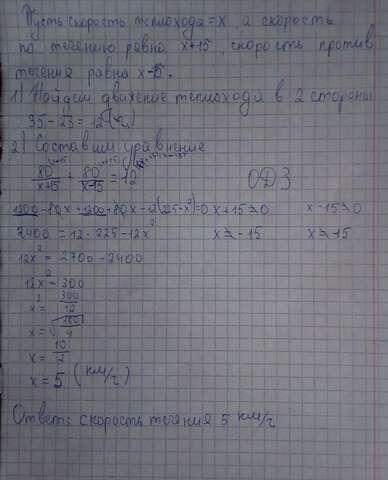 Пусть скорость теплохода = x, а скорость
по течению равна x+15, скорость против
течения равна x-15.
1) Найдем движение теплохода в 2 стороны
35-23=12(ч)
2) Составим уравнение
80/(x+15) + 80/(x-15) = 12
ОДЗ
1200-80x+1200+80x-12(225-x²)=0 x+15≠0 x-15≠0
2400=12·225-12x² x≠-15 x≠15
12x²=2700-2400
12x²=300
x²=300/12
x=√100/4
x=10/2
x=5 (км/ч)
Ответ: скорость течения 5 км/ч